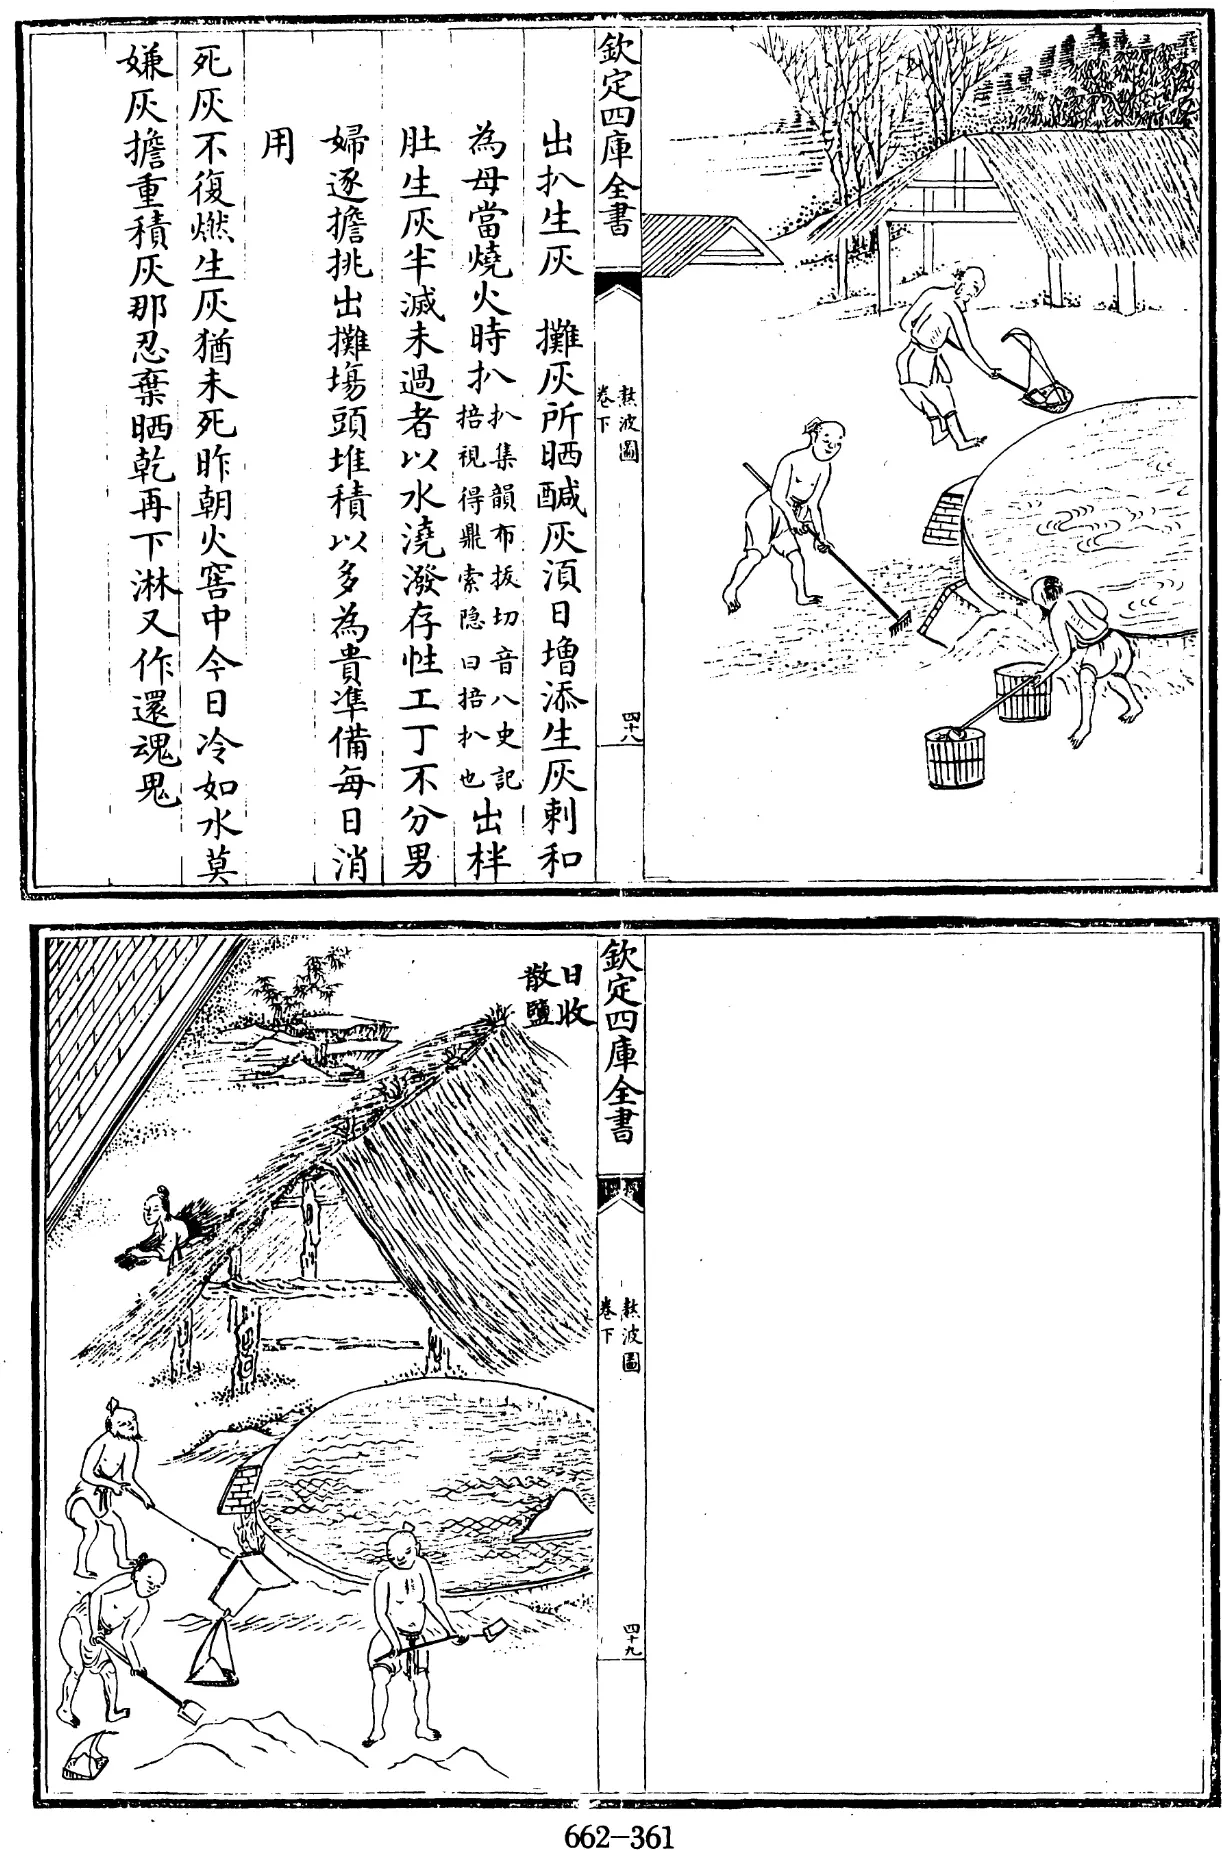 欽定四庫全書
熬波圖
卷下
四十八
出扒生灰　攤灰所晒醎灰湏日增添生灰剌和
為母當燒火時扒
扒集韻布拔切音八史記
掊視得鼎索隐曰掊扒也
出柈
肚生灰半滅未過者以水澆潑存性工丁不分男
婦逐擔挑出攤塲頭堆積以多為貴準備每日消
用
死灰不復燃生灰猶未死昨朝火窖中今日冷如水莫
嫌灰擔重積灰那忍棄晒乾再下淋又作還魂鬼
欽定四庫全書
熬波圖
卷下
四十九
日收
散鹽
662-361